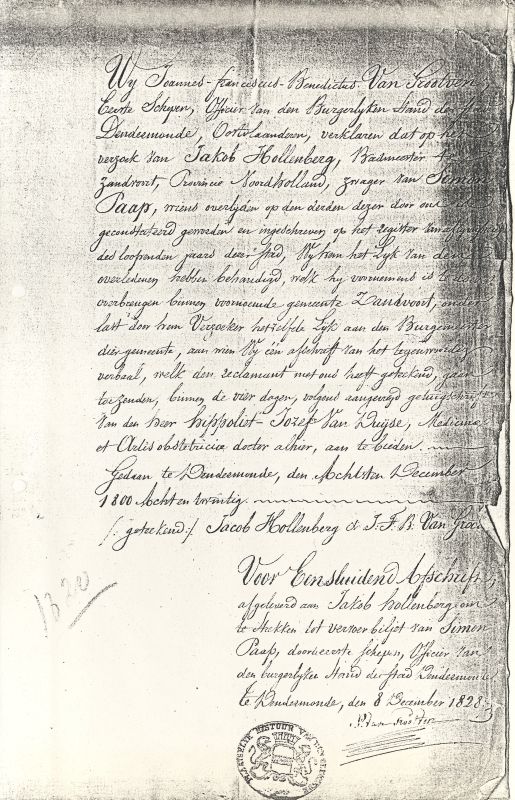 Wy Joannes-franciscus-Benedictus Van Grootven
Eerste Schepen, Officier van den Burgerlyken Stand der
Dendermonde, Oostvlaanderen, verklaren dat op het
verzoek van Jakob Hollenberg, Badmeester te
zandvoort, Provincie Noordholland, zwager van Simon
Paap, wiens overlyden op den derden dezer door ons
geconstateerd geworden en ingeschreven op het register
des loopenden jaars dezer stad, Wy hem het Lyk van den
overledenen hebben behandigd, welk hy voornemens is te
overbrengen binnen voornoemde gemeente Zandvoort, onder
last door hem Verzoeker hetzelfde Lyk aan den Burgemeester
dier gemeente, aan wien Wy een afschrift van het tegenwoordig
verbaal, welk den reclamant met ons heeft geteekend, gaan
toezenden, binnen de vier dagen, volgens aangevoegd getuigschrift
van den heer hippoliet-Jozef Van Duyse, Medicinæ
et Artis obstetriciæ doctor alhier, aan te bieden.
Gedaan te Dendermonde, den Achtsten December
1800 Acht en twintig.
/: geteekend:/ Jacob Hollenberg & J. F. B. Van
1820
Voor Eensluidend Afschrift,
afgeleverd aan Jakob hollenberg om
te strekken tot vervoerbiljet van Simon
Paap, door eerste schepen, Officier van
den burgerlyken Stand der stad Dendermonde
te Dendermonde, den 8 December 1828.
PLAATSELYK BESTUUR